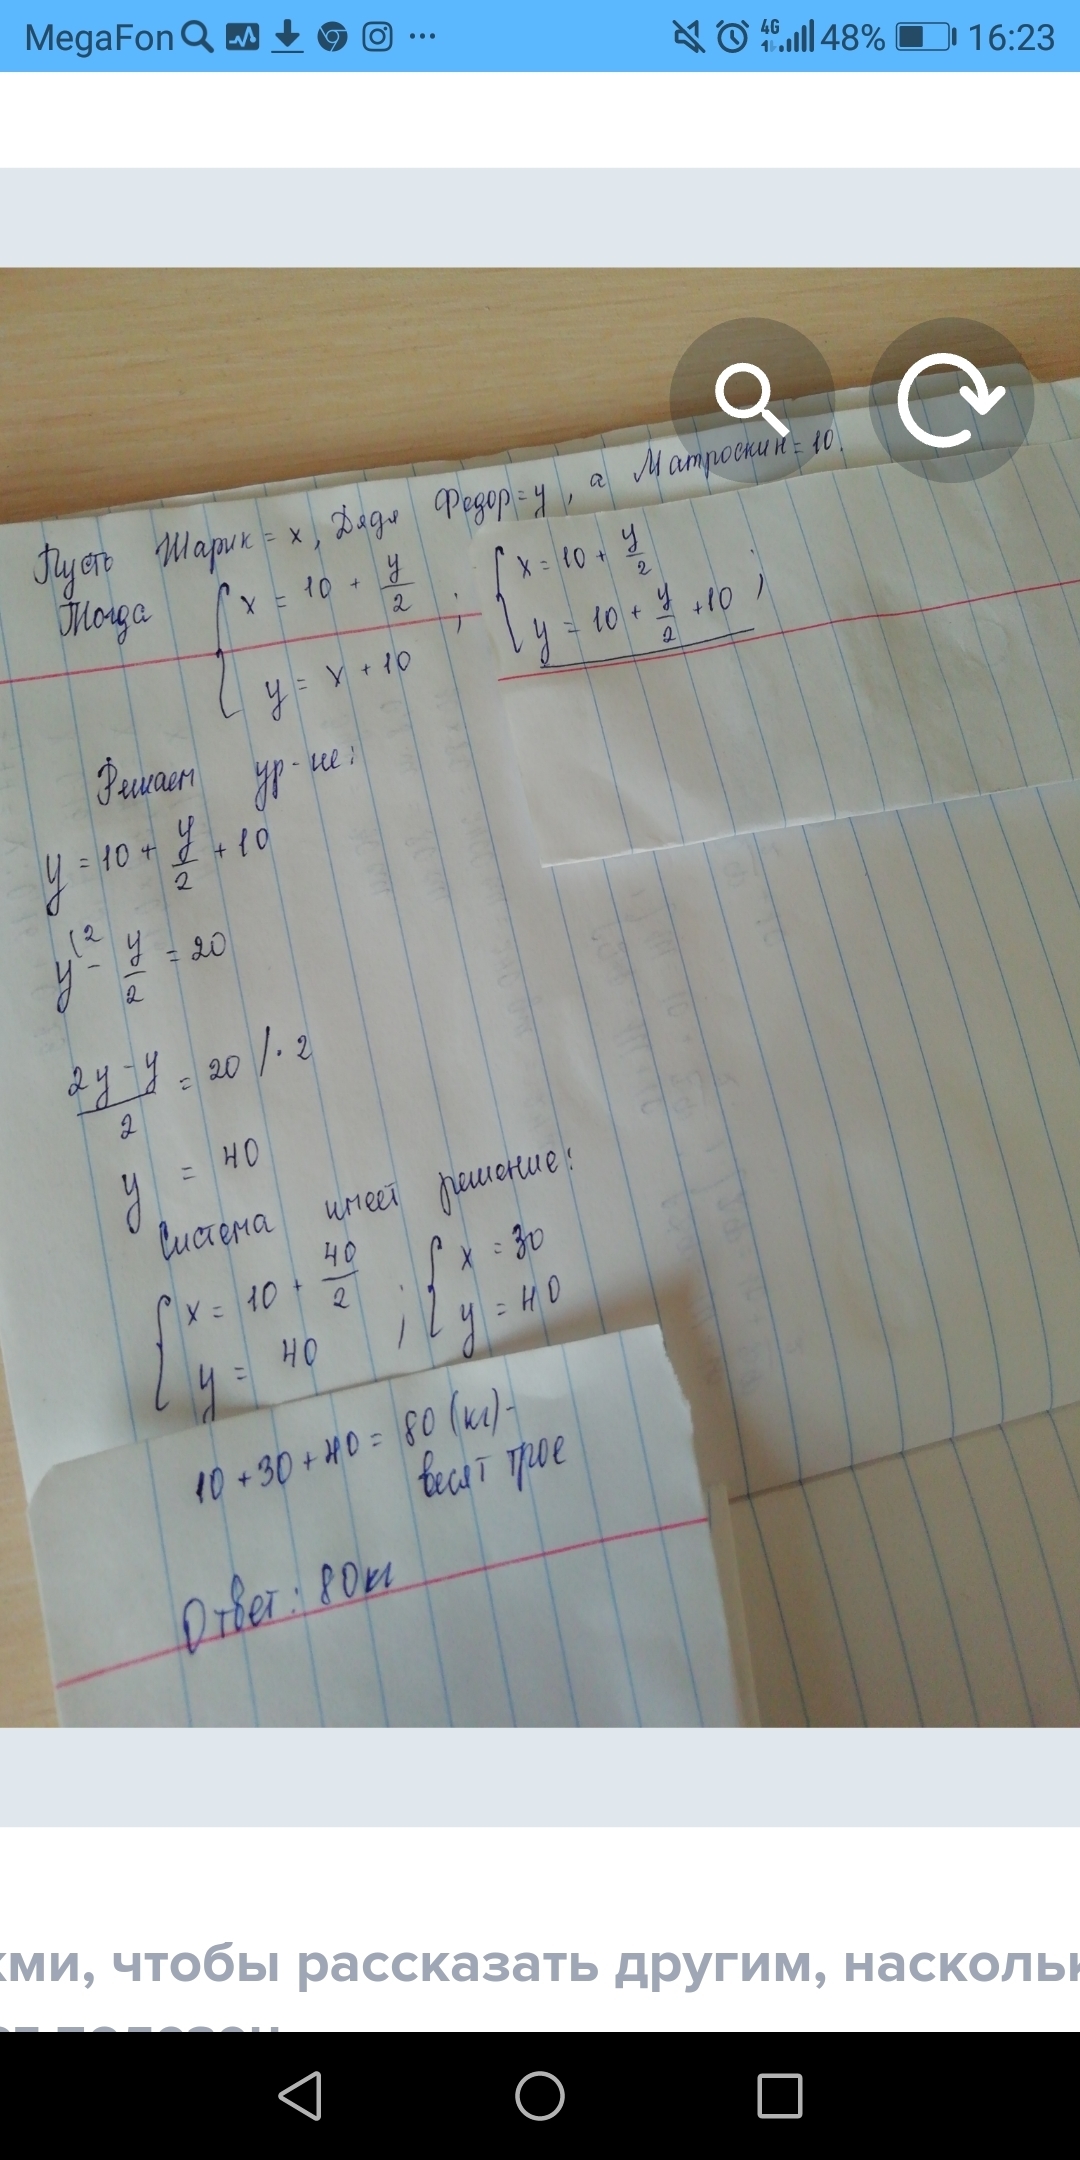 MegaFon 4G 48% 16:23
Пусть Шарик = x, Дядя Федор = y, а Матроскин = 10.
Тогда { x = 10 + y/2 ; { x = 10 + y/2
y = x + 10 y = 10 + y/2 + 10 ;
Решаем ур-ие:
y = 10 + y/2 + 10
y(2 - y/2 = 20
2y - y/2 = 20 / · 2
y = 40
Система имеет решение:
{ x = 10 + 40/2 ; { x = 30
y = 40 y = 40
10 + 30 + 40 = 80 (кг) -
весят трое
Ответ: 80кг
ми, чтобы рассказать другим, насколь